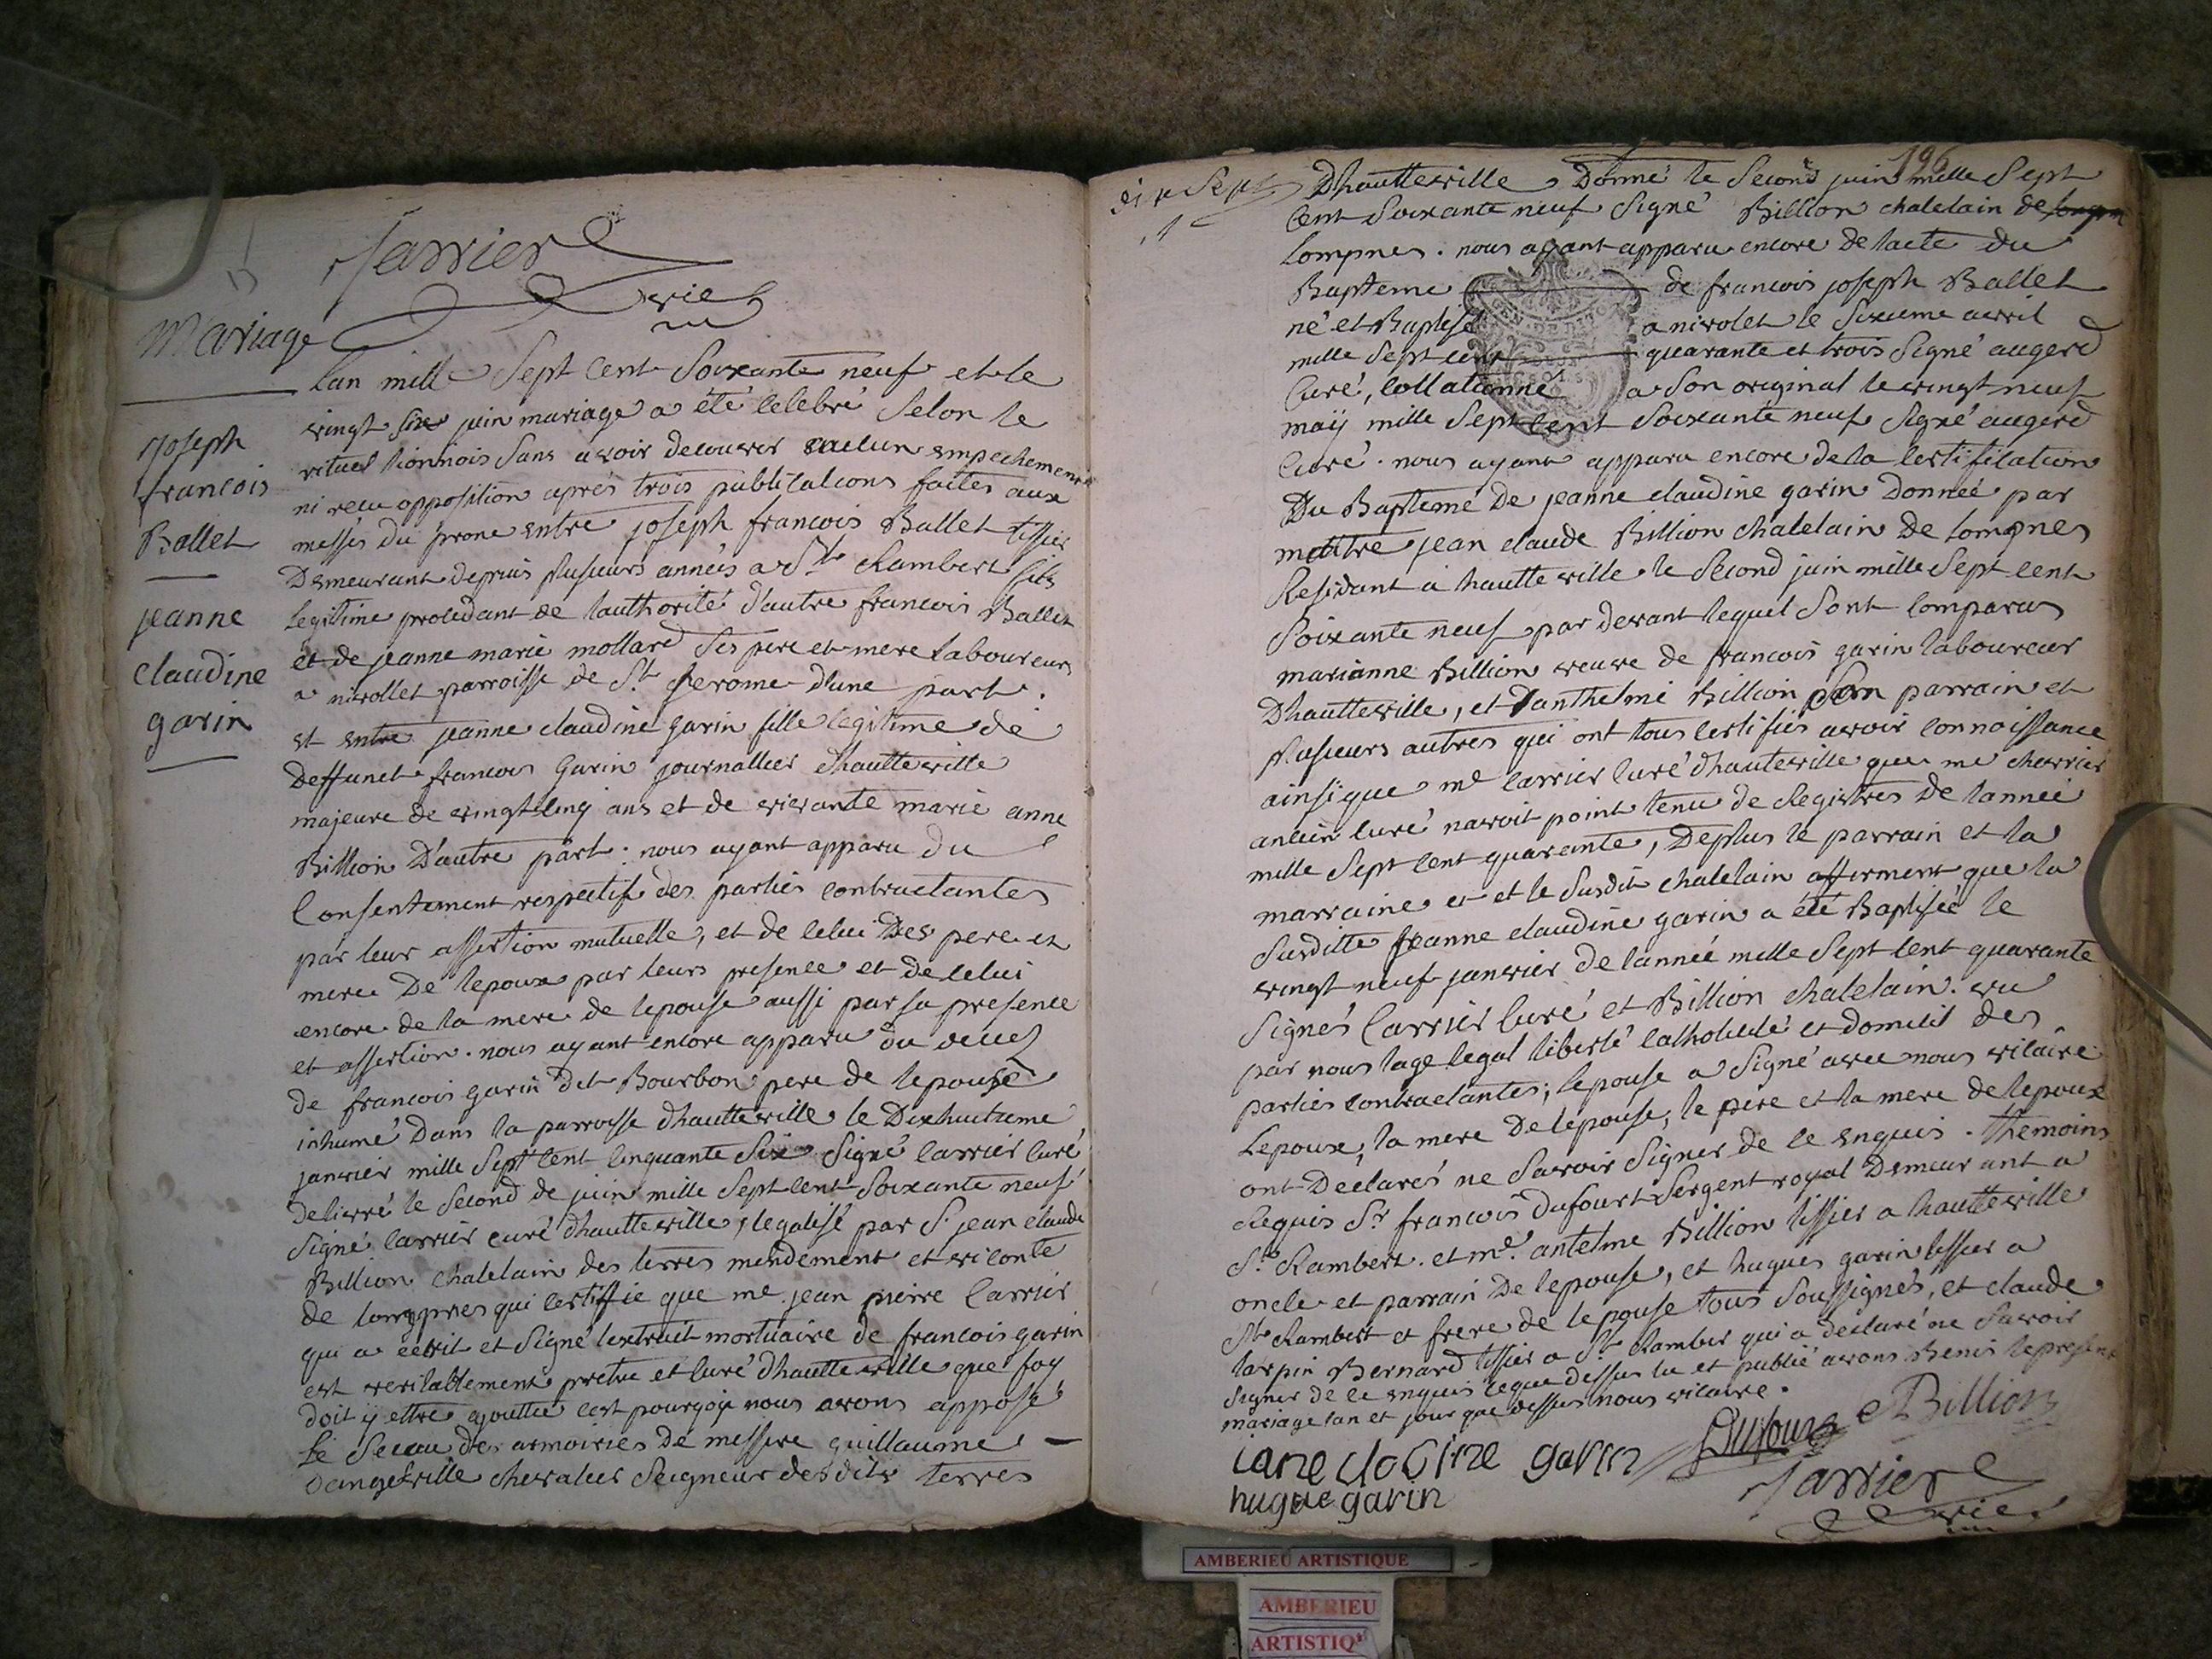 Jarrier
vic
Mariage
Joseph
francois
Ballet
jeanne
claudine
garin
Lan mille Sept Cent Soixante neuf et le
vingt six juin mariage a été Celebré Selon le
rituel lionnois Sans avoir decouver aucun empechement
ni recu opposition aprés trois publications faites aux
messes du prone entre joseph francois Ballet tissier
Demeurant depuis plusieurs années a St Rambert fils
Legitime procedant de lauthorité d'autre francois Ballet
et de jeanne marie mollard Ses pere et mere laboureurs
a nivollet parroisse de St jerome d'une part.
et entre jeanne claudine garin fille legitime de
deffunct francois Garin journallier dhautteville
majeure de vingt cinq ans et de vivante marie anne
Billion D'autre part. nous ayant apparu du
Consentement respectif des parties contractantes
par leur assertion mutuelle, et de celui Des pere et
mere De lepoux par leurs presence et de celui
encore de la mere de lepouse aussi par sa presence
et assertion. nous ayant encore apparu du deces
de francois garin dit Bourbon pere de lepouse
inhumé Dans la parroisse dhautteville le Dixhuitieme
janvier mille Sept Cent Cinquante Six Signé Carrier Curé
delivré le Second de juin mille Sept Cent Soixante neuf
Signé Carrier curé dhautteville, legalisé par Sr jean claude
Billion Chatelain des terres mendement et viconté
de lompnes qui Certiffie que me jean pierre Carrier
qui a écrit et Signé lextrait mortuaire de francois garin
est veritablement pretre et Curé dhautteville que foy
doit ÿ ettre ajouttée Cest pourqoy nous avons apposé
Le Sceau des armoiries de messire guillaume
Dangeville chevalier Seigneur desdites terres
196
dix Sept
Dhautteville Donné le Second juin mille Sept
Cent Soixante neuf Signé Billion chatelain de
lompnes. nous ayant apparu encore de lacte du
Bapteme de francois joseph Ballet
né et Baptisé a nivolet le Sixieme avril
mille Sept Cent quarante et trois Signé augerd
Curé, Collationné a Son original le vingt neuf
maÿ mille Sept Cent Soixante neuf Signé augerd
Curé. nous ayant apparu encore de la Certification
Du Bapteme De jeanne claudine garin Donnée par
maitre jean claude Billion Chatelain De lompnes
Residant a hautteville le Second juin mille Sept Cent
Soixante neuf par devant lequel Sont Comparus
marianne Billion veuve de francois garin laboureur
Dhautteville, et Danthelme Billion Son parrain et
plusieurs autres qui ont tous Certifiés avoir Connoissance
ainsi que me Carrier Curé dhauteville que me chevrier
ancien Curé navoit point tenu de Registres De lannée
mille Sept Cent quarante, Deplus le parrain et la
marraine et le Susdit chatelain afferment que la
Susditte jeanne claudine garin a été Baptisée le
vingt neuf janvier de lannée mille Sept Cent quarante
Signés Carrier Curé et Billion Chatelain. vu
par nous lage legal liberté Catholicité et domicil des
parties contractantes; lepouse a Signé avec nous vicaire
Lepoux, la mere De lepouse, le pere et la mere de lepoux
ont Declarés ne Savoir Signer de ce enquis. themoins
Requis Sr francois Dufourt Sergent royal Demeurant a
St Rambert. et me. antelme Billion tissier a hautteville
oncle et parrain De lepouse, et hugues garin tissier a
St Rambert et frere de lepouse tous Soussignés, et claude
Carpin Bernard tissier a St Rambert qui a declaré ne Savoir
Signer de ce enquis ceque dessus lu et publié avons Benis le present
mariage lan et jour que dessus nous vicaire.
iane clodine garin
Dufourt
Billion
hugue garin
Jarrier
vic
AMBERIEU ARTISTIQUE
AMBERIEU
ARTISTIQ